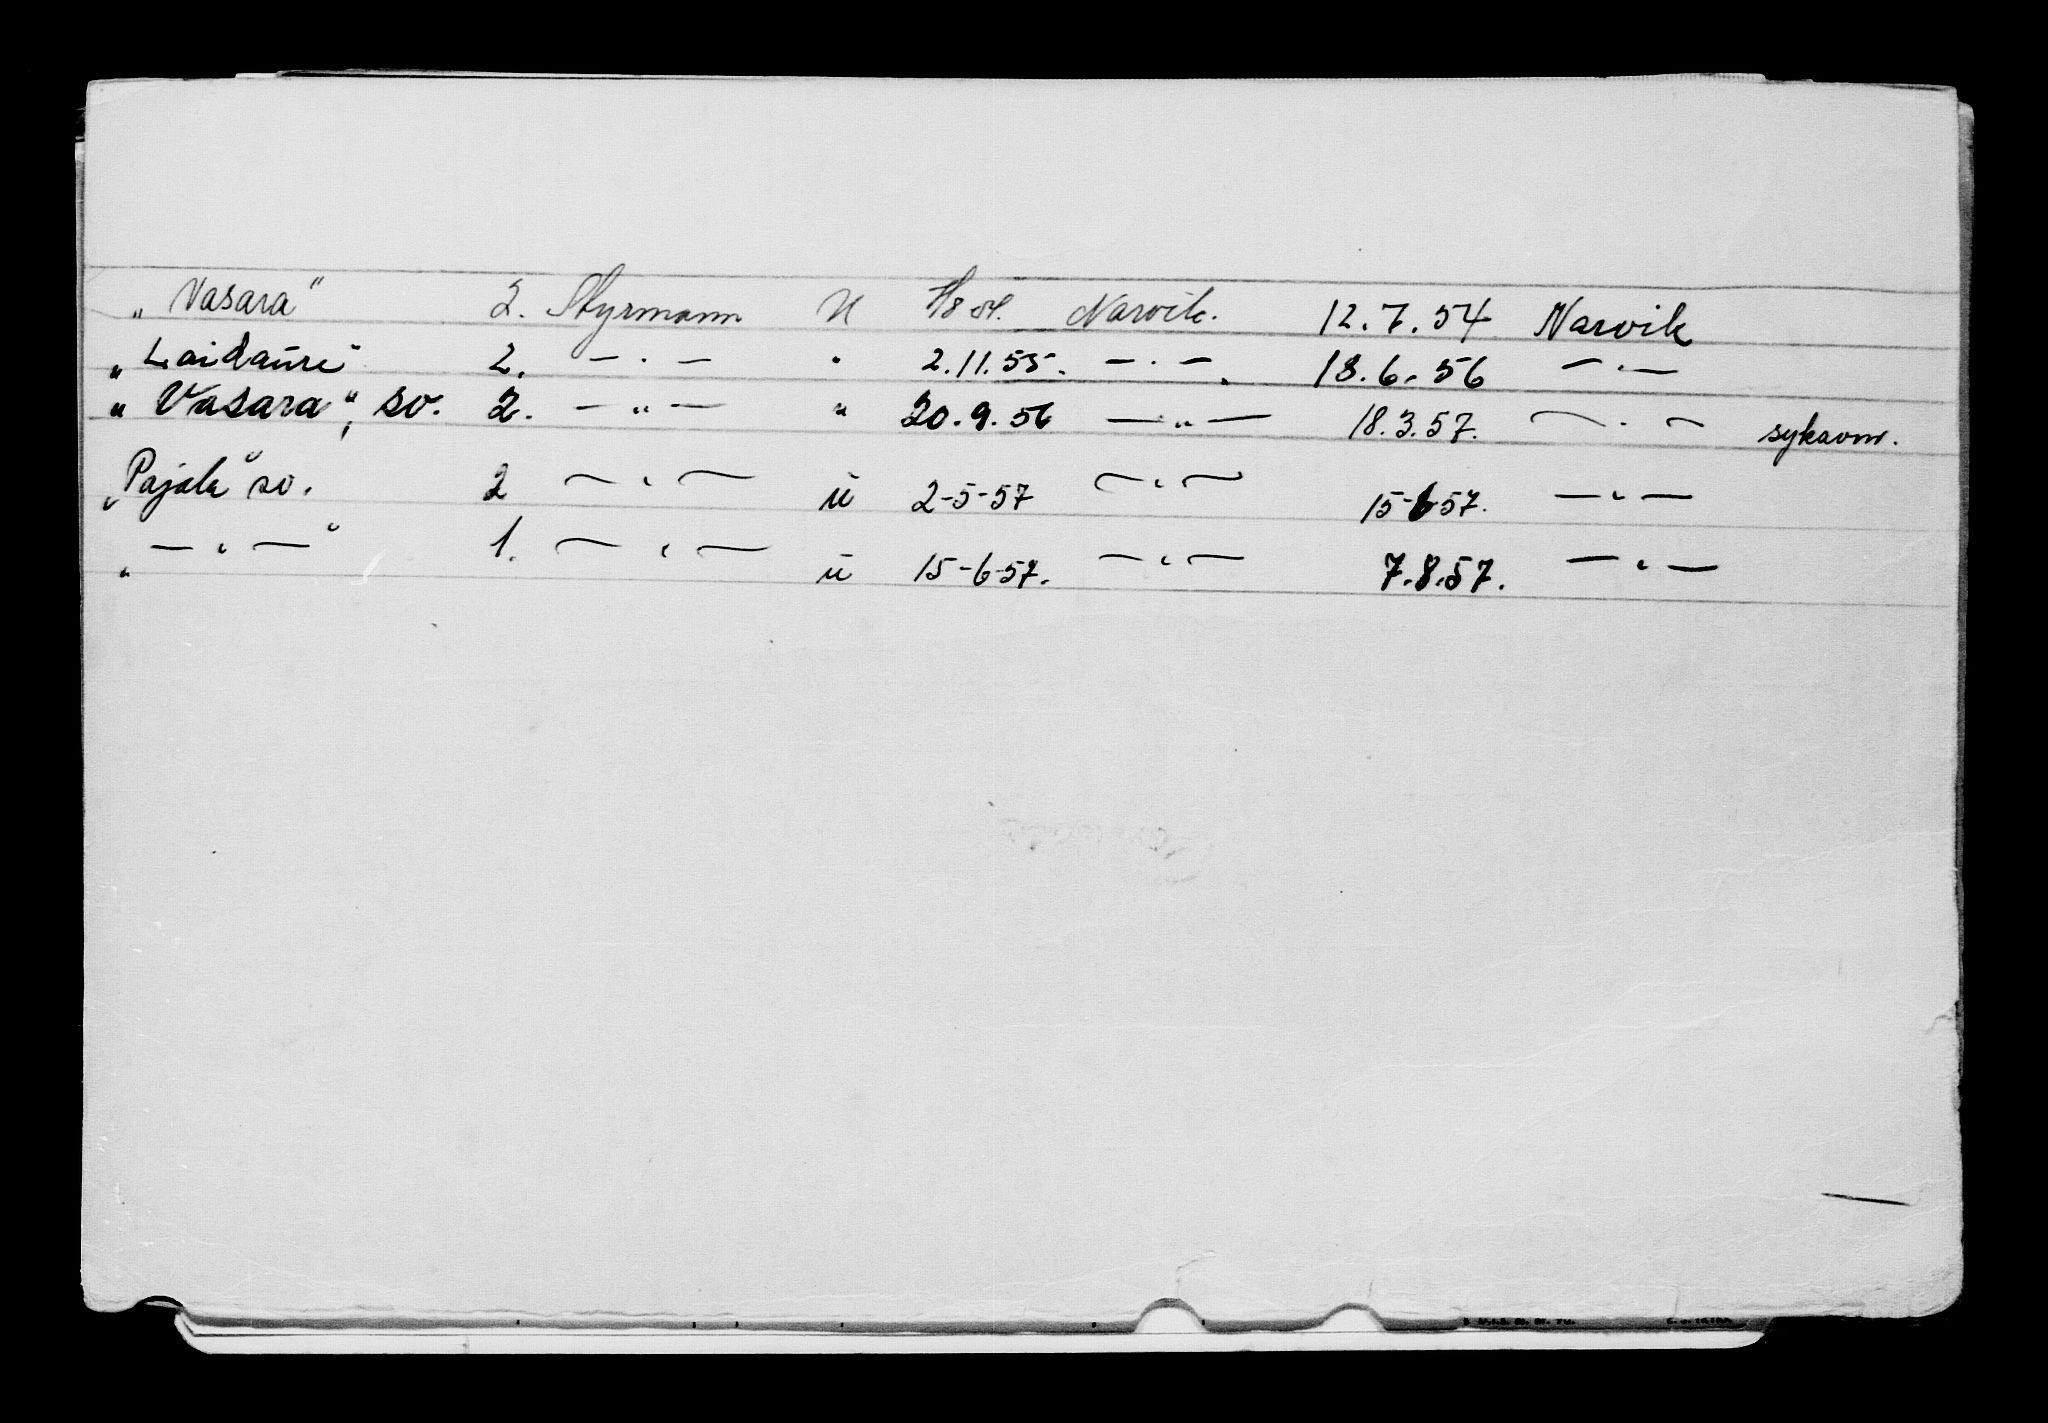 „Vasara" 2. Styrmann U Narvik. 12.7.54 Narvik
„Laidaure" 2. — . — " 2.11.55. — . — 18.6.56 — . —
„Vasara", sv. 2. — „ — " 20.9.56 — „ — 18.3.57. — . — sykavm.
„Pajala" sv. 2 — " — u 2-5-57 — " — 15-6-57. — " —
„ — " — " 1. — " — u 15-6-57. — " — 7.8.57. — " —